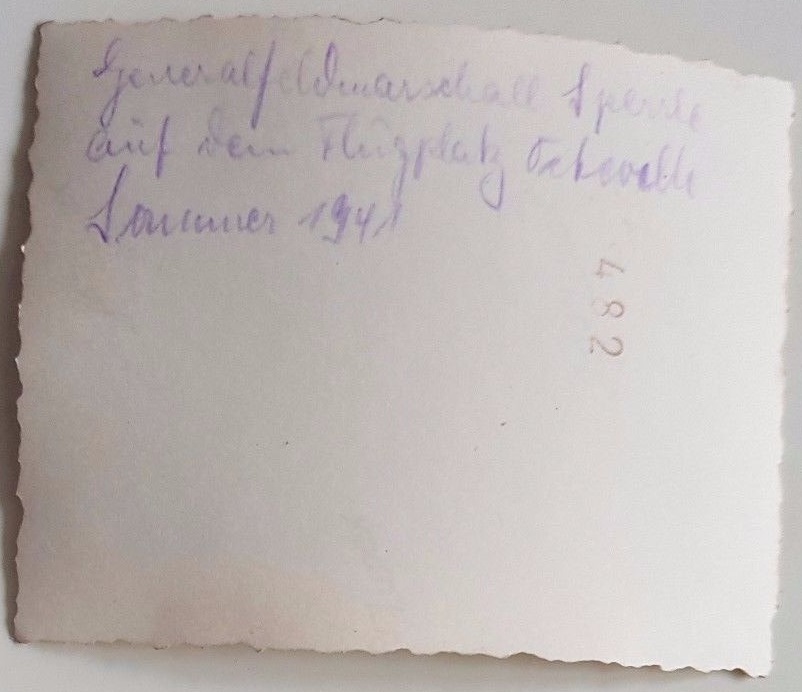 Generalfeldmarschall Sperrle
auf dem Flugplatz
Sommer 1941
482